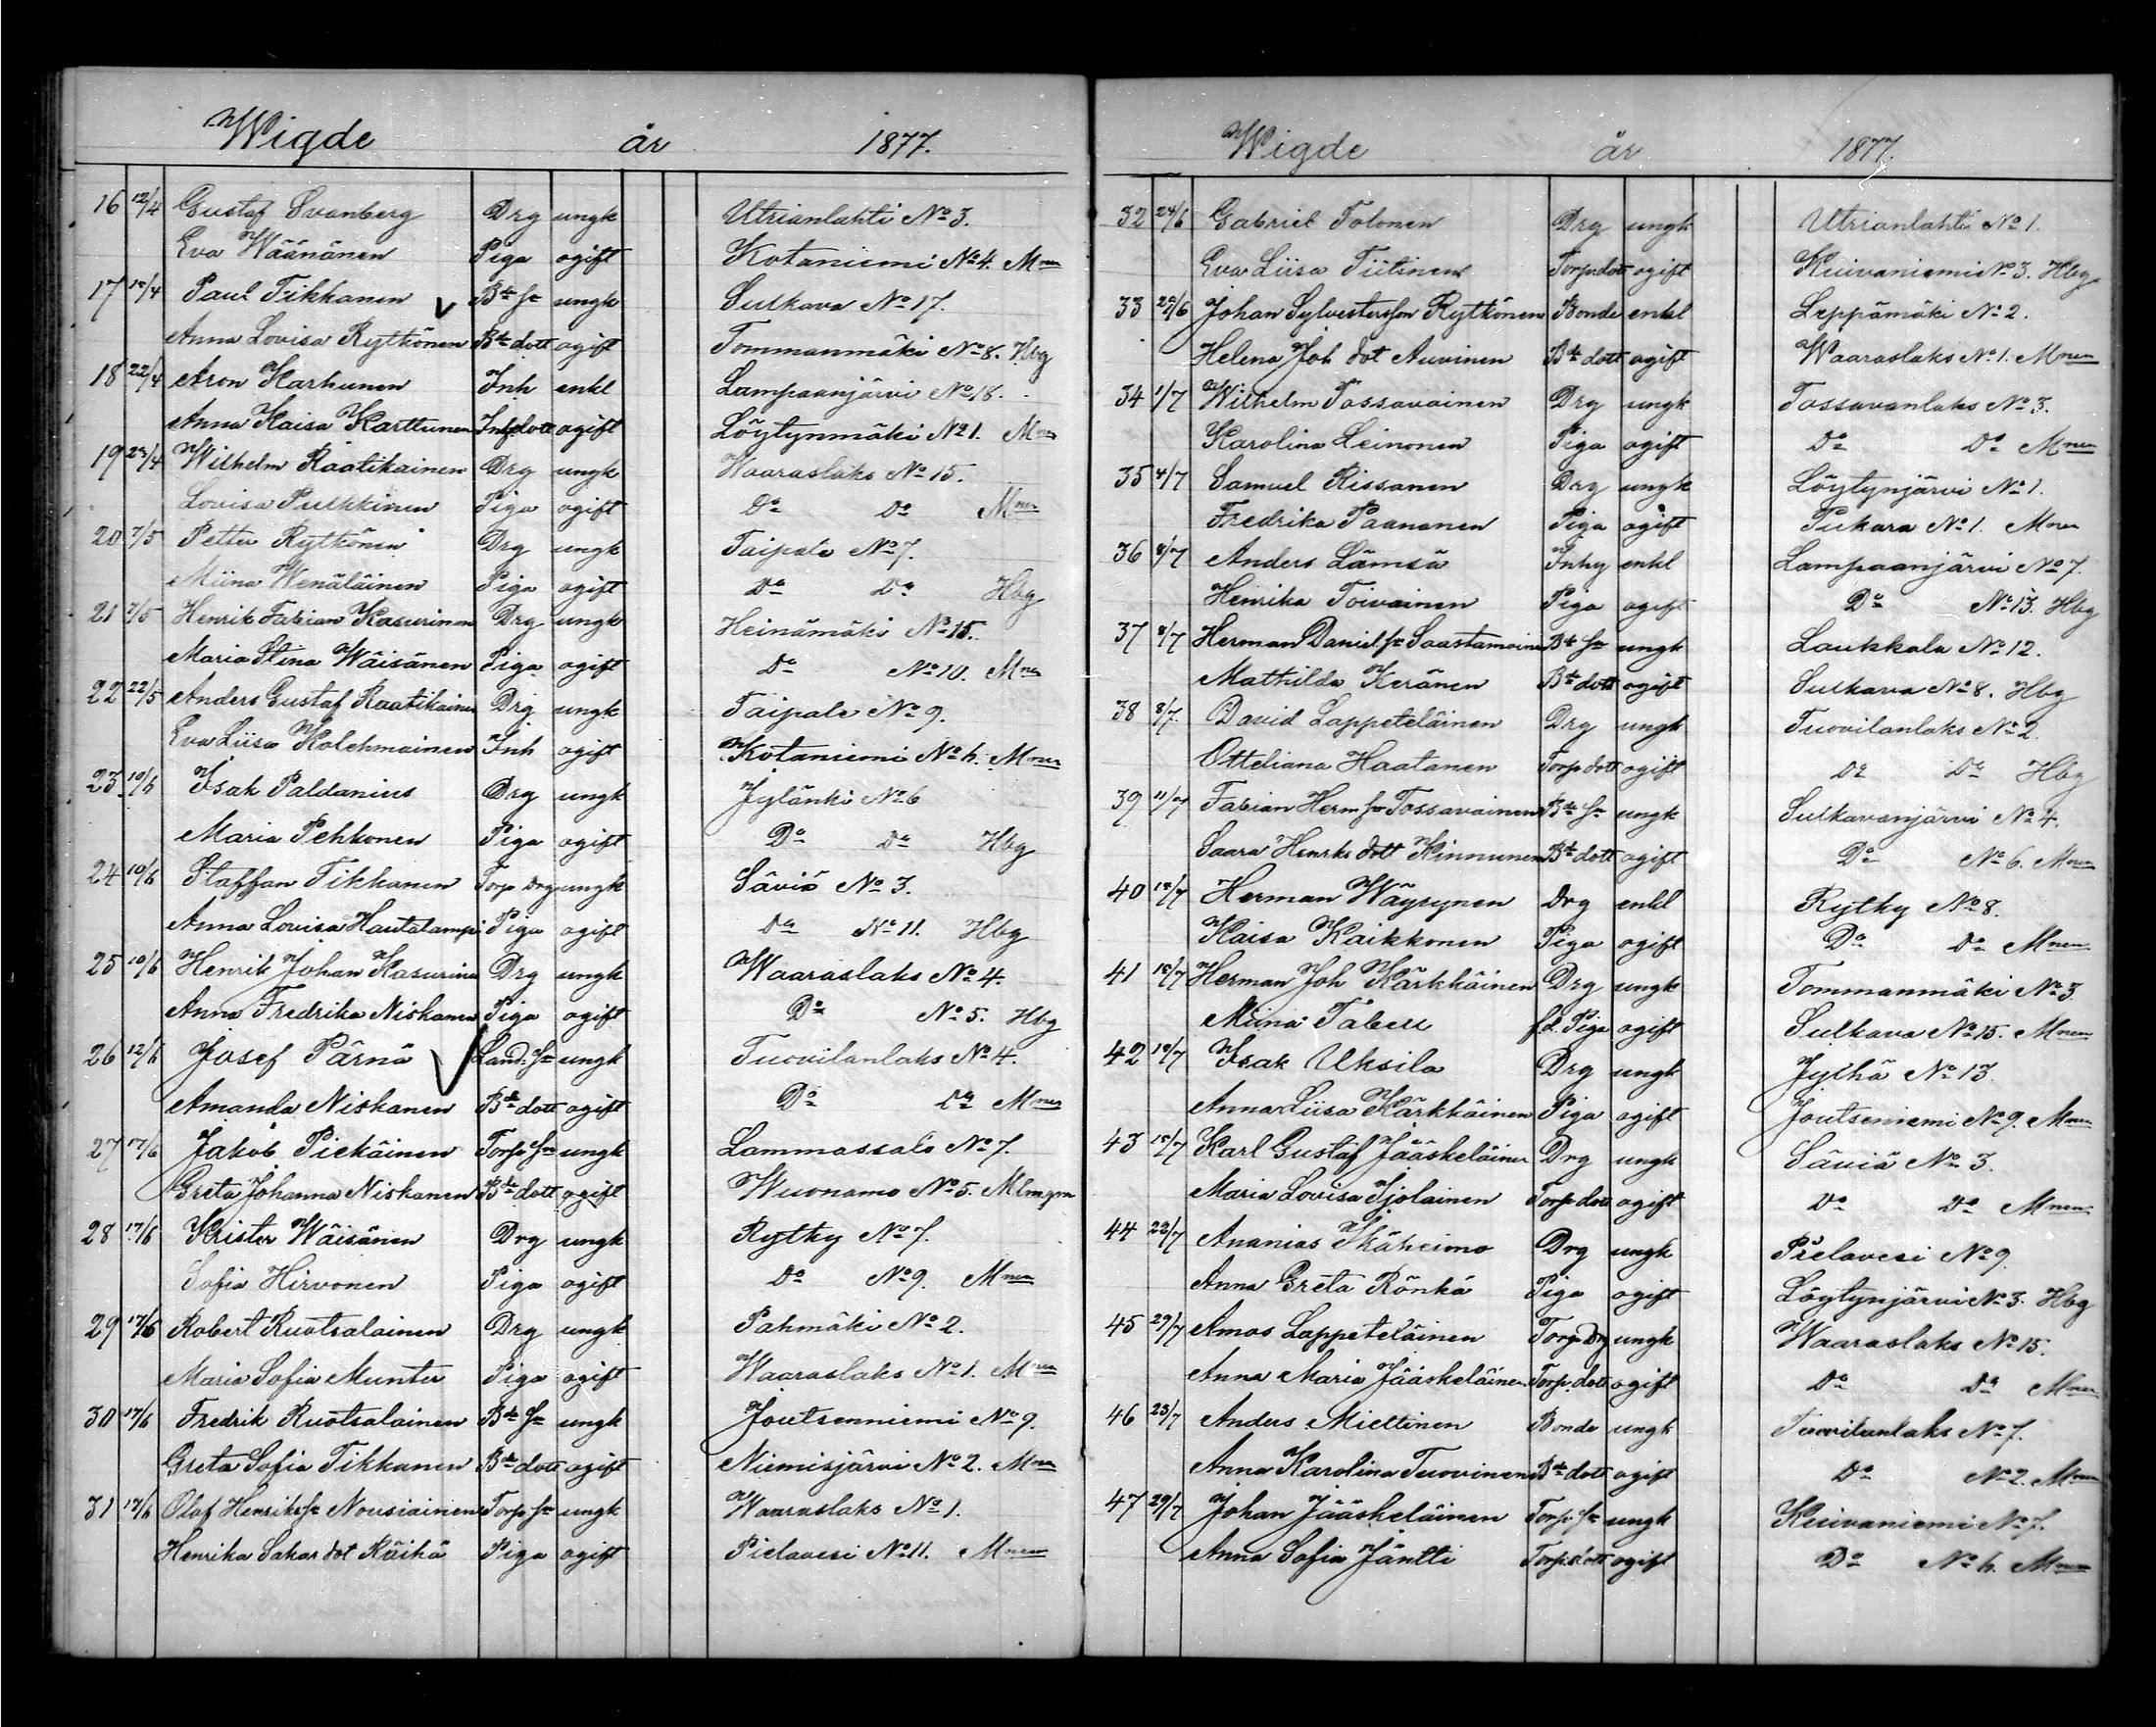 Wigde år 1877.
16 12/4 Gustaf Svanberg Drg ungk Utrianlahti No 3.
Eva Wäänänen Piga ogift Kotaniemi No 4. Mnen
17 15/4 Paul Tikkanen Bde sn ungk Sulkava No 17.
Anna Lovisa Rytkönen Bde dott ogift Tommanmäki No 8. Hbg
18 22/4 Aron Karhunen Inh enkl Lampaanjärvi No 18.
Anna Kaisa Karttunen Inh dott ogift Löytynmäki No 1. Mnen
19 Wilhelm Raatikainen Drg ungk Waaraslaks No 15.
Lovisa Pulkkinen Piga ogift Do Do Mnen
20 7/5 Petter Rytkönen Drg ungk Taipale No 7.
Miina Wenäläinen Piga ogift Do Do Hbg
21 7/5 Henrik Fabian Kasurinen Drg ungk Heinämäki No 15.
Maria Stina Wäisänen Piga ogift Do No 10. Mnen
22 22/5 Anders Gustaf Raatikainen Drg ungk Taipale No 9.
Eva Liisa Kolehmainen Inh ogift Kotaniemi No 6. Mnen
23 10/6 Isak Paldanius Drg ungk Jylänki No 6
Maria Pehkonen Piga ogift Do Do Hbg
24 10/6 Staffan Tikkanen Torp Drg ungk Säviä No 3.
Anna Lovisa Hautalampi Piga ogift Do No 11. Hbg
25 10/6 Henrik Johan Kasurinen Drg ungk Waaraslaks No 4.
Anna Fredrika Niskanen Piga ogift Do No 5. Hbg
26 12/6 Josef Pärnä Land. sn ungk Tuovilanlaks No 4.
Amanda Niskanen Bde dott ogift Do Do Mnen
27 17/6 Jakob Piekäinen Torp sn ungk Lammassalo No 7.
Greta Johanna Niskanen Bde dott ogift Wuonamo No 5.
28 17/6 Krister Wäisänen Drg ungk Rytky No 7.
Sofia Hirvonen Piga ogift Do No 9. Mnen
29 17/6 Robert Ruotsalainen Drg ungk Pahmäki No 2.
Maria Sofia Munter Piga ogift Waaraslaks No 1. Mnen
30 17/6 Fredrik Ruotsalainen Bde sn ungk Joutsenniemi No 9.
Greta Sofia Tikkanen Bde dott ogift Niemisjärvi No 2. Mnen
31 17/6 Olof Henrikssn Nousiainen Torp sn ungk Waaraslaks No 1.
Henrika Sakar dot Räihä Piga ogift Pielavesi No 11. Mnen
Wigde år 1877.
32 24/6 Gabriel Tolonen Drg ungk Utrianlahti No 1.
Eva Liisa Tiitinen Torp dott ogift Kuivaniemi No 3. Hbg
33 Johan Sylvestersson Rytkönen Bonde enkl Leppämäki No 2.
Helena Joh dot Auvinen Bde dott ogift Waaraslaks No 1. Mnen
34 1/7 Wilhelm Tossavainen Drg ungk Tossavanlaks No 3.
Karolina Leinonen Piga ogift Do Do Mnen
35 4/7 Samuel Rissanen Drg ungk Löytynjärvi No 1.
Fredrika Paananen Piga ogift Pukara No 1. Mnen
36 8/7 Anders Lämsä Inhy enkl Lampaanjärvi No 7.
Henrika Toivainen Piga ogift Do No 13. Hbg
37 8/7 Herman Daniel sn Saastamoinen Bde sn ungk Laukkala No 12.
Mathilda Keränen Bde dott ogift Sulkava No 8. Hbg
38 8/7 David Lappeteläinen Drg ungk Tuovilanlaks No 2
Otteliana Haatanen Torp dott ogift Do Do Hbg
39 11/7 Fabian Herm sn Tossavainen Bde sn ungk Sulkavanjärvi No 4.
Saara Henriks dott Kinnunen Bde dott ogift Do No 6. Mnen
40 15/7 Herman Wäyrynen Drg enkl Rytky No 8.
Kaisa Kaikkonen Piga ogift Do Do Mnen
41 15/7 Herman Joh Kärkkäinen Drg ungk Tommanmäki No 3
Miina Tabell f.d. Piga ogift Sulkava No 15. Mnen
42 Isak Uksila Drg ungk Jylhä No 13
Anna Liisa Kärkkäinen Piga ogift Joutseniemi No 9. Mnen
43 15/7 Karl Gustaf Jääskeläinen Drg ungk Säviä No 3.
Maria Lovisa Ijolainen Torp dott ogift Do Do Mnen
44 22/7 Ananias Ikäheimo Drg ungk Pielavesi No 9
Anna Greta Rönkä Piga ogift Löytynjärvi No 3. Hbg
45 29/7 Amos Lappeteläinen Torp Drg ungk Waaraslaks No 15.
Anna Maria Jääskeläinen Torp. dott ogift Do Do Mnen
46 23/7 Anders Miettinen Bonde ungk Tuovilanlaks No 7.
Anna Karolina Tuovinen Bde dott ogift Do No 2. Mnen
47 29/7 Johan Jääskeläinen Torp sn ungk Kuivaniemi No 7.
Anna Sofia Jäntti Torp. dott ogift Do No 6. Mnen